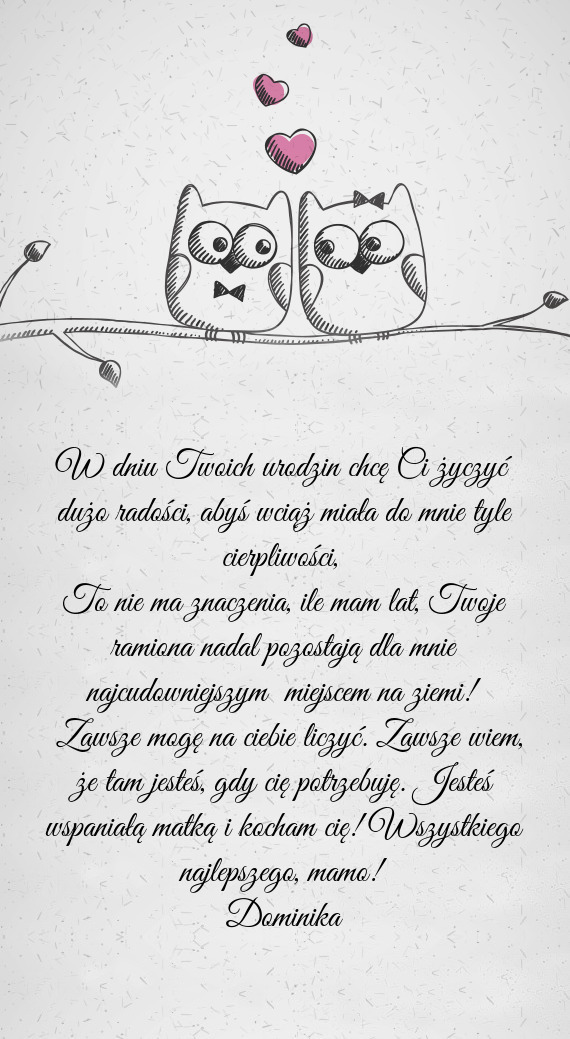 W dniu Twoich urodzin chcę Ci życzyć
dużo radości, abyś wciąż miała do mnie tyle
cierpliwości,
To nie ma znaczenia, ile mam lat, Twoje
ramiona nadal pozostają dla mnie
najcudowniejszym  miejscem na ziemi!
Zawsze mogę na ciebie liczyć. Zawsze wiem,
że tam jesteś, gdy cię potrzebuję. Jesteś
wspaniałą matką i kocham cię! Wszystkiego
najlepszego, mamo!
Dominika